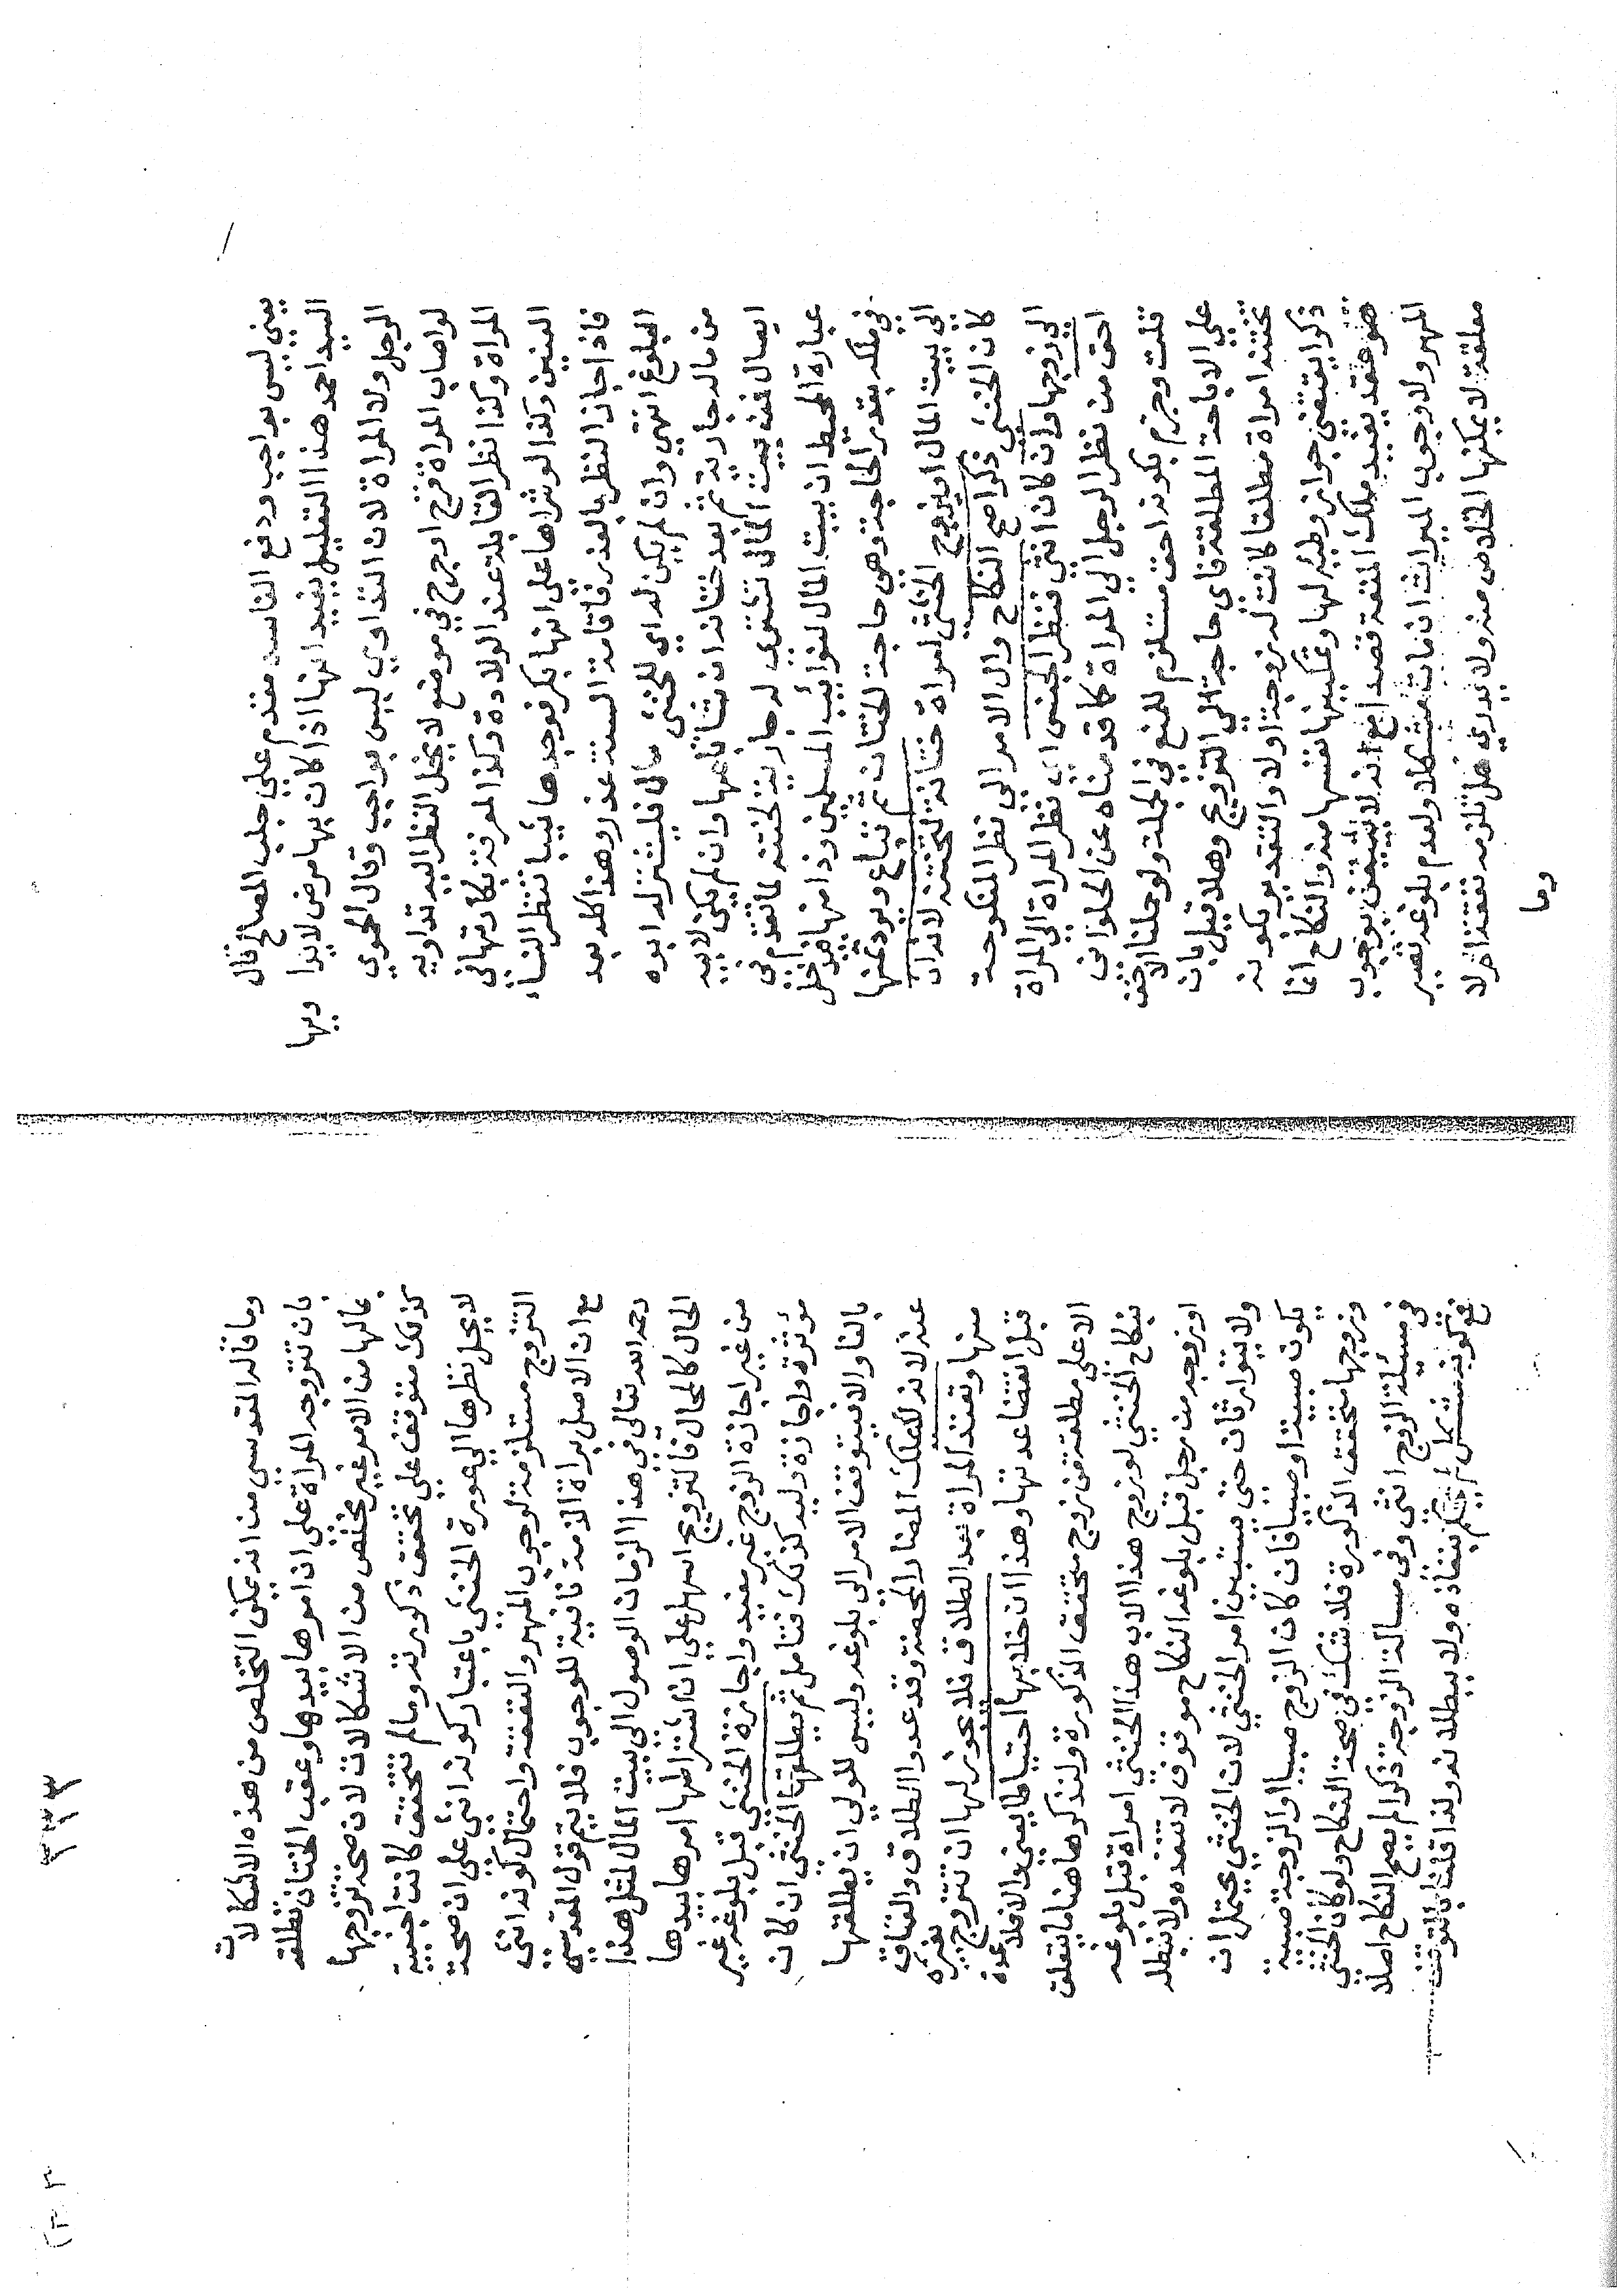 يعني ليس بواجب ودفع الفاسد مقدم على جلب المصالح قال
السيد احمد هذا التعليل يفيد انها اذا كان بها مرض لا يداويها
الرجل ولا المراة لان التداوي ليس بواجب وقال الحموي
لو اصاب المراة قرح او جرح في موضع لا يحل النظر اليه تداويه
المراة وكذا نظر القابلة عند الولادة وكذا لمعرفة بكارتها في
العنين وكذا لو شراها على انها بكر فوجدها ثيبا تنظر النساء
فاذا جاز النظر بالعذر فاقامة السنة عذر وهذا كله بعد
البلوغ انتهى وان لم يكن له اي للخنثى مال فليشتر له ابوه
من ماله جارية ثم بعد ختانه ان شاء باعها وان لم يكن لابيه
ايصال فمن بيت المال تشترى له جارية تختنه لما تقدم في
عبارة المحيط ان بيت المال لنوائب المسلمين وذا منها فيدخل
في ملكه بقدر الحاجة وهي حاجة الختان ثم تباع ويرد ثمنها
الى بيت المال او يزوج الخنثى امراة ختانة لتختنه لانه ان
كان الخنثى ذكرا صح النكاح وال الامر الى نظر المنكوحة
الى زوجها وان كان انثى فنظر الجنس اي نظر المراة الى المراة
احق من نظر الرجل الى المراة كما قدمناه عن الحلواني
قلت وجزم بكونه احق مستلزم للمنع في الجملة ولو حملنا الاحق
على الاباحة المطلقة فاي حاجة الى التزويج وهلا قيل بان
تختنه امراة مطلقا كانت له زوجة او لا والتقدير بكونه
ذكرا يقتضي جواز وطئه لها وتمكينها نفسها منه والنكاح انما
هو عقد يفيد ملك المتعة قصدا مع انه لا يتيقن بوجوب
المهر ولا وجوب الميراث ان مات مشكلا ولعدم بلوغه تصير
معلقة لا يمكنها الخلاص منه ولا يدري هل تلزمه نفقتها ام لا
وما
وما قاله المقدسي من انه يمكن التخلص من هذه الاشكالات
بان تتزوجه المراة على ان امرها بيدها وعقب الختان تطلقه
بمالها من الامر غير مخلص من الاشكالات لان صحة تزوجها
كذلك متوقف على تحقق ذكورته وما لم تتحقق كانت اجنبية
لا يحل نظرها الى عورة الخنثى باعتبار كونه انثى على ان صحة
التزوج مستلزمة لوجوب المهر والنفقة واحتمال كونه انثى
مع ان الاصل براة الذمة نافية للوجوب فلا يتم قول المقدسي
رحمه الله تعالى في هذا الزمان الوصول الى بيت المال لمثل هذا
الحال كالمحال فالتزويج اسهل على ان اشتراطها امرها بيدها
من غير اجازة الزوج غير مفيد واجازة الخنثى قبل بلوغه غير
مؤثرة واجازة وليه كذلك فتامل ثم يطلقها الخنثى ان كان
بالغا والا فيتوقف الامر الى بلوغه وليس للولي ان يطلقها
عنه لانه لا يملك المضار المحضة وقد عدوا الطلاق والعتاق
منها وتعتد المراة بعد الطلاق فلا يجوز لها ان تتزوج بغيره
قبل انقضاء عدتها وهذا ان خلا بها احتياطا يعني والا فلا عدة
الا على مطلقة من زوج متحقق الذكورة ولنذكر هاهنا ما يتعلق
بنكاح الخنثى لو زوج هذا الاب هذا الخنثى امراة قبل بلوغه
او زوجه من رجل قبل بلوغه النكاح موقوف لا تنفذه ولا نبطله
ولا يتوارثان حتى يستبين امر الخنثى لان الخنثى يحتمل ان
يكون صبية او صبيا فان كان الزوج صبيا والزوجة صبية
وزوجها متحقق الذكورة فلا شك في صحة النكاح ولو كان الخنثى
في مسئلة الزوج انثى وفي مسالة الزوجة ذكرا لم يصح النكاح اصلا
فمع كونه مشكل لم يحكم بنفاذه ولا ببطلانه ولذا قلنا بالتوقف
٣٣٣